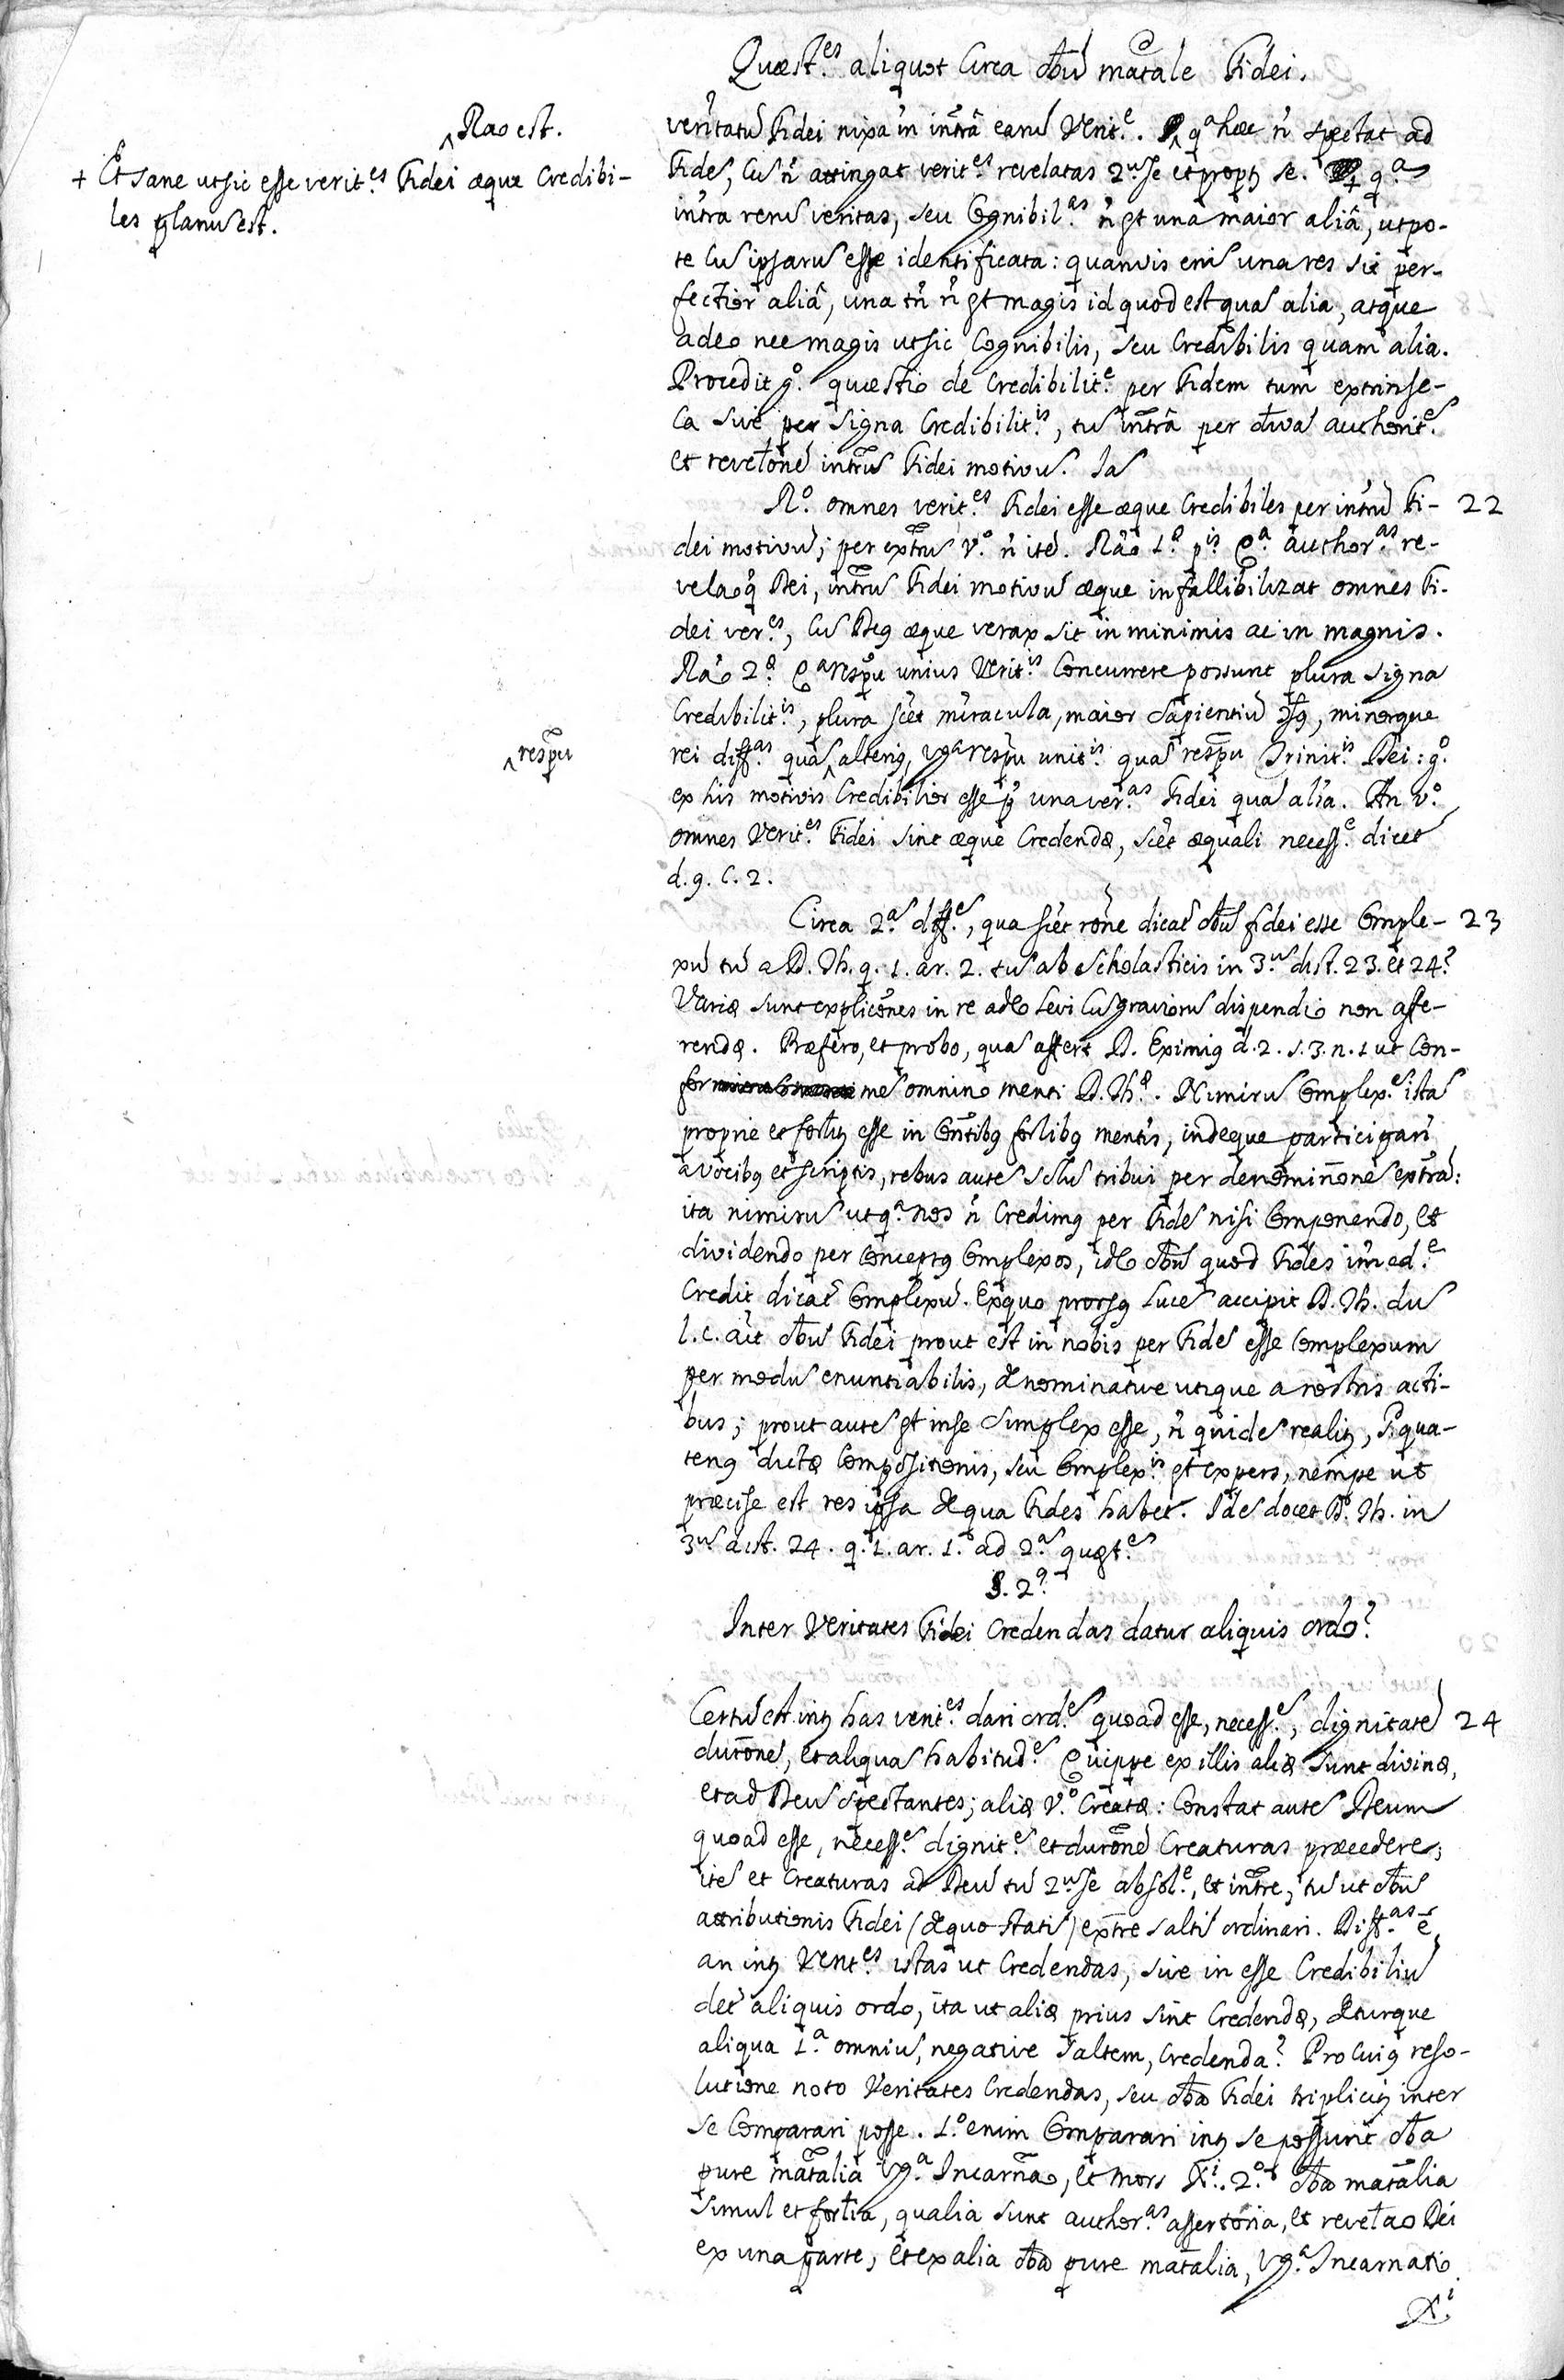 Quæst.es aliquot Circa obũ matale Fidei.
veritatũ Fidei nixa in intrã earũ Verit.e. qa hæc ñ spectat ad
Fidẽ, Cũ ñ attingat verit.es revelatas 2.ũ se et propt se. + q.a
intra rerũ veritas, seu Cognibil.as ñ st una maior aliâ, utpo-
te Cũ ipsarũ esse identificata: quanvis enĩ una res sit per-
fectior aliâ, una tñ ñ st magis id quod est quã alia, atque
adeo nec magis ut sic Cognibilis, seu Credibilis quam alia.
Procedit g.o quæstio de Credibilit.e per Fidem tum extrinse-
ca sive per signa Credibilit.is, tũ intrâ per divã authorit.e
et revelonẽ intrũ Fidei motivũ. Ia
^ Rao est.
+ Et sane ut sic esse verit.es Fidei æque Credibi-
les planũ est.
R.o omnes verit.es Fidei esse æque Credibiles per intrũ Fi- 22
dei motivũ; per extrũ v.o ñ itẽ. Rão 1.a p.is Qa author.as re-
velaoq Dei, intrũ Fidei motivũ æque infallibilizat omnes Fi-
dei ver.es, Cũ Deg æque verax sit in minimis ac in magnis.
Rão 2.a Qa respu unius Verit.is Concurrere possunt plura signa
Credibilit.is, plura scẽt miracula, maior Sapientiũ Csg, minorque
rei diff.as quã ^ alterig, vg.a respu unit.is quã respu Trinit.is Dei: g.o
^ respu
ex his motivis Credibilior esse p una ver.as Fidei quã alia. An v.o
omnes Verit.es Fidei sint æque Credendæ, scẽt æquali necess.e dicet
d. 9. C. 2.
Circa 2.ã diff.e, qua scẽt rõne dicat obũ fidei esse Comple- 23
xũ tũ a D. Th. q. 1. ar. 2. tũ ab Scholasticis in 3.ũ dist. 23. et 24?
Variæ sunt explicõnes in re adeo levi Cũ graviorũ dispendio non affe-
rendæ. Præfero, et probo, quã affert D. Eximig d. 2. s. 3. n. 1 ut Con-
formẽ omnino menti D. Th.æ. Nimirũ Complex.e istã
proprie et forlit esse in Contibg forlibg mentis, indeque participari
a vocibg et scriptis, rebus autẽ solũ tribui per denominonẽ extrã:
ita nimirũ ut q.a nos ñ Credimg per Fidẽ nisi Componendo, et
dividendo per Conceptg Complexos, idẽo obũ quod Fides immed.e
Credit dicat Complexũ. Ex quo prorsg lucẽ accipit D. Th. dũ
l. c. ait obũ Fidei prout est in nobis per Fidẽ esse Complexum
per modũ enuntiabilis, denominative utique a nostris acti-
bus; prout autẽ st in se Simplex esse, ñ quidẽ realit, sqqua-
teng dictæ Compositionis, seu Complex.is st expers, nempe ut
præcise est res ipsa de qua Fides habet. Idẽ docet D. Th. in
3.ũ dist. 24. q. 1. ar. 1. ad 2.ã quæst.e
§. 2.o
Inter Veritates Fidei Credendas datur aliquis ordo?
Certũ est int has verit.es dari ord.e quoad esse, necess.e, dignitatẽ 24
durõnẽ, et aliquã habitud.e Quippe ex illis aliæ sunt divinæ,
et ad Deũ spectantes; aliæ v.o Creatæ: Constat autẽ Deum
quoad esse, necess.e dignit.e et durõnẽ Creaturas præcedere;
itẽ et Creaturas ad Deũ tũ 2.ũ se absol.e, et intre, tũ ut obũ
attributionis Fidei (de quo statĩ) extre saltĩ ordinari. Diff.as ẽ,
an int Verit.es istas ut Credendas, sive in esse Credibiliũ
det aliquis ordo, ita ut aliæ prius sint Credendæ, deturque
aliqua 1.a omniũ, negative saltem, Credenda? Pro Cuig reso-
lutione noto Veritates Credendas, seu oba Fidei triplicit inter
se Comparari posse. 1.o enim Comparari int se possunt oba
pure matalia vg.a Incarnao, et mors Xi. 2.o oba matalia
simul et forlia, qualia sunt author.as assertoria, et revelao Dei
ex una parte, et ex alia oba pure matalia, vg.a Incarnatio
X.i